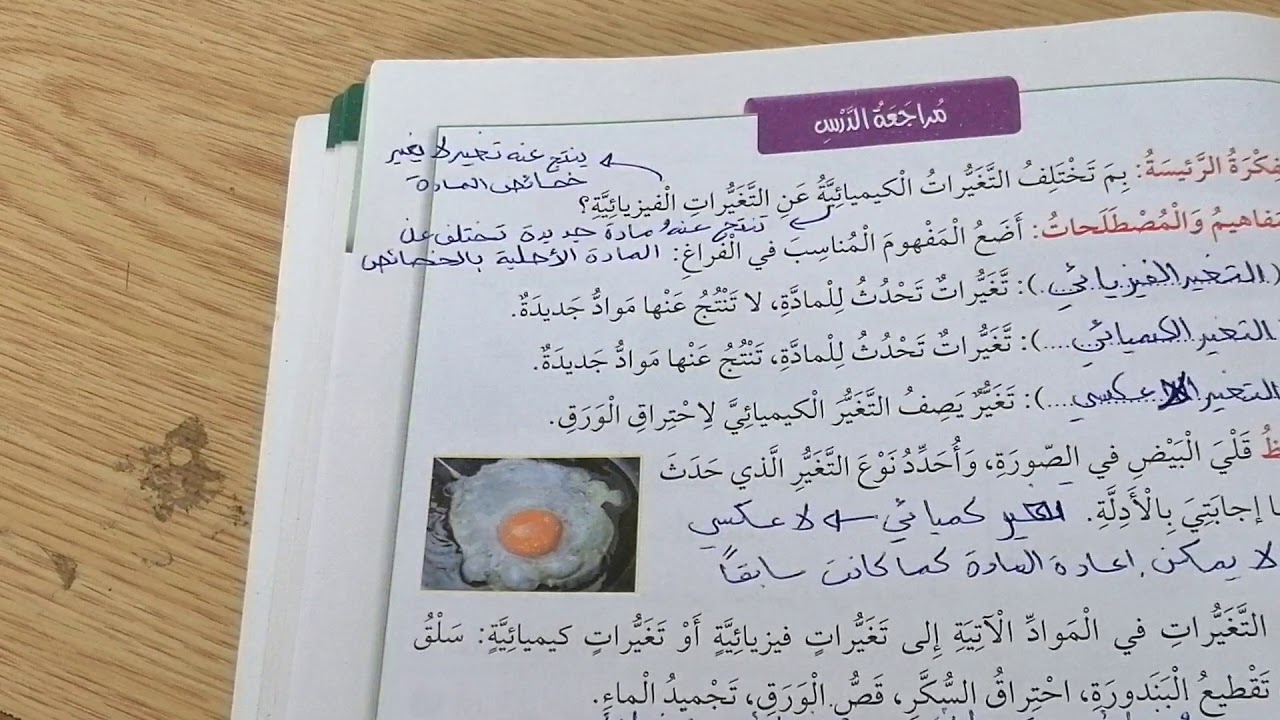 مُراجَعَةُ الدَّرْسِ
ينتج عنه تغير لا يغير
خصائص المادة
الرَّئيسَةُ: بِمَ تَخْتَلِفُ التَّغَيُّراتُ الْكيميائِيَّةُ عَنِ التَّغَيُّراتِ الْفيزيائِيَّةِ؟
تنتج عنه مادة جديدة تختلف عن
وَالْمُصْطَلَحاتُ: أَضَعُ الْمَفْهومَ الْمُناسِبَ في الْفَراغِ: المادة الأصلية بالخصائص
(التغير الفيزيائي.): تَّغَيُّراتٌ تَحْدُثُ لِلْمادَّةِ، لا تَنْتُجُ عَنْها مَوادُّ جَديدَةٌ.
التغير الكيميائي....): تَّغَيُّراتٌ تَحْدُثُ لِلْمادَّةِ، تَنْتُجُ عَنْها مَوادُّ جَديدَةٌ.
التغير اللاعكسي....): تَغَيُّرٌ يَصِفُ التَّغَيُّرَ الْكيميائِيَّ لِاحْتِراقِ الْوَرَقِ.
قَلْيَ الْبَيْضِ في الصّورَةِ، وَأُحَدِّدُ نَوْعَ التَّغَيُّرِ الَّذي حَدَثَ
إجابَتِيَ بِالْأَدِلَّةِ. كميائي لا عكسي
لا يمكن اعادة المادة كما كانت سابقاً
التَّغَيُّراتِ في الْمَوادِّ الْآتِيَةِ إِلى تَغَيُّراتٍ فيزيائِيَّةٍ أَوْ تَغَيُّراتٍ كيميائِيَّةٍ: سَلْقُ
تَقْطيعُ الْبَنَدورَةِ، احْتِراقُ السُّكَّرِ، قَصُّ الْوَرَقِ، تَجْميدُ الْماءِ.